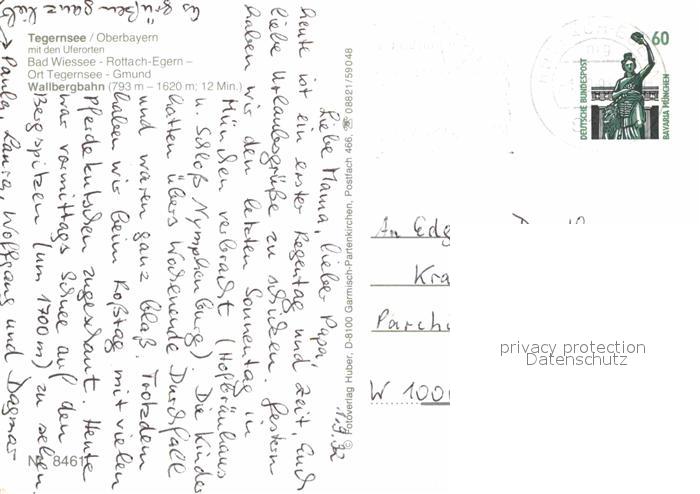 Tegernsee / Oberbayern
mit den Uferorten
Bad Wiessee - Rottach-Egern –
Ort Tegernsee - Gmund
Wallbergbahn (793 m – 1620 m; 12 Min.)
Nr. 8461
© Fotoverlag Huber, D-8100 Garmisch-Partenkirchen, Postfach 466, ☏ 08821/59048
Liebe Mama, lieber Papa,
heute ist ein erster Regentag und Zeit, Euch
liebe Urlaubsgrüße zu schicken. Gestern
haben wir den letzten Sonnentag in
München verbracht (Hofbräuhaus
u. Schloß Nymphenburg). Die Kinder
hatten übers Wochenende Durchfall
und waren ganz blaß. Trotzdem
haben wir beim Roßtag mit vielen
Pferdekutschen zugeschaut. Heute
war vormittags Schnee auf den
Bergspitzen (um 1700 m) zu sehen.
Es grüßen ganz lieb
→ Paula, Laura, Wolfgang und Dagmar
60
DEUTSCHE BUNDESPOST
BAVARIA MÜNCHEN
An Edg
Kra
Parchi
W 100
privacy protection
Datenschutz